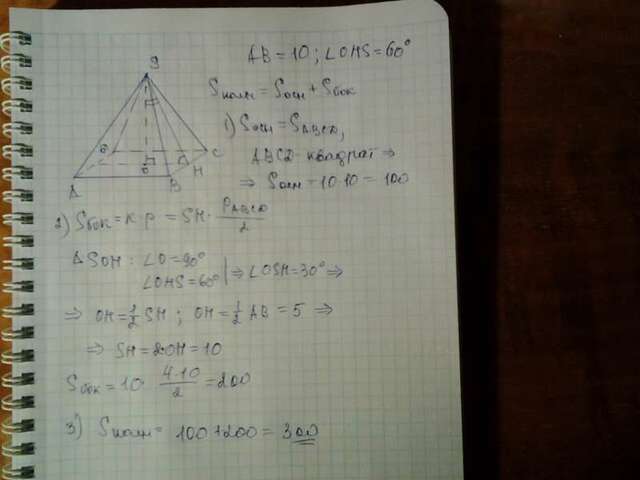 AB = 10 ; ∠OHS = 60°
Sполн = Sосн + Sбок
1) Sосн = SABCD,
ABCD - квадрат ⇒
⇒ Sосн = 10·10 = 100
S
A
B
C
H
O
2) Sбок = K·p = SH · PABCD/2
Δ SOH : ∠O = 90°
∠OHS = 60° | ⇒ ∠OSH = 30° ⇒
⇒ OH = 1/2 SH ; OH = 1/2 AB = 5 ⇒
⇒ SH = 2·OH = 10
Sбок = 10 · 4·10/2 = 200
3) Sполн = 100 + 200 = 300